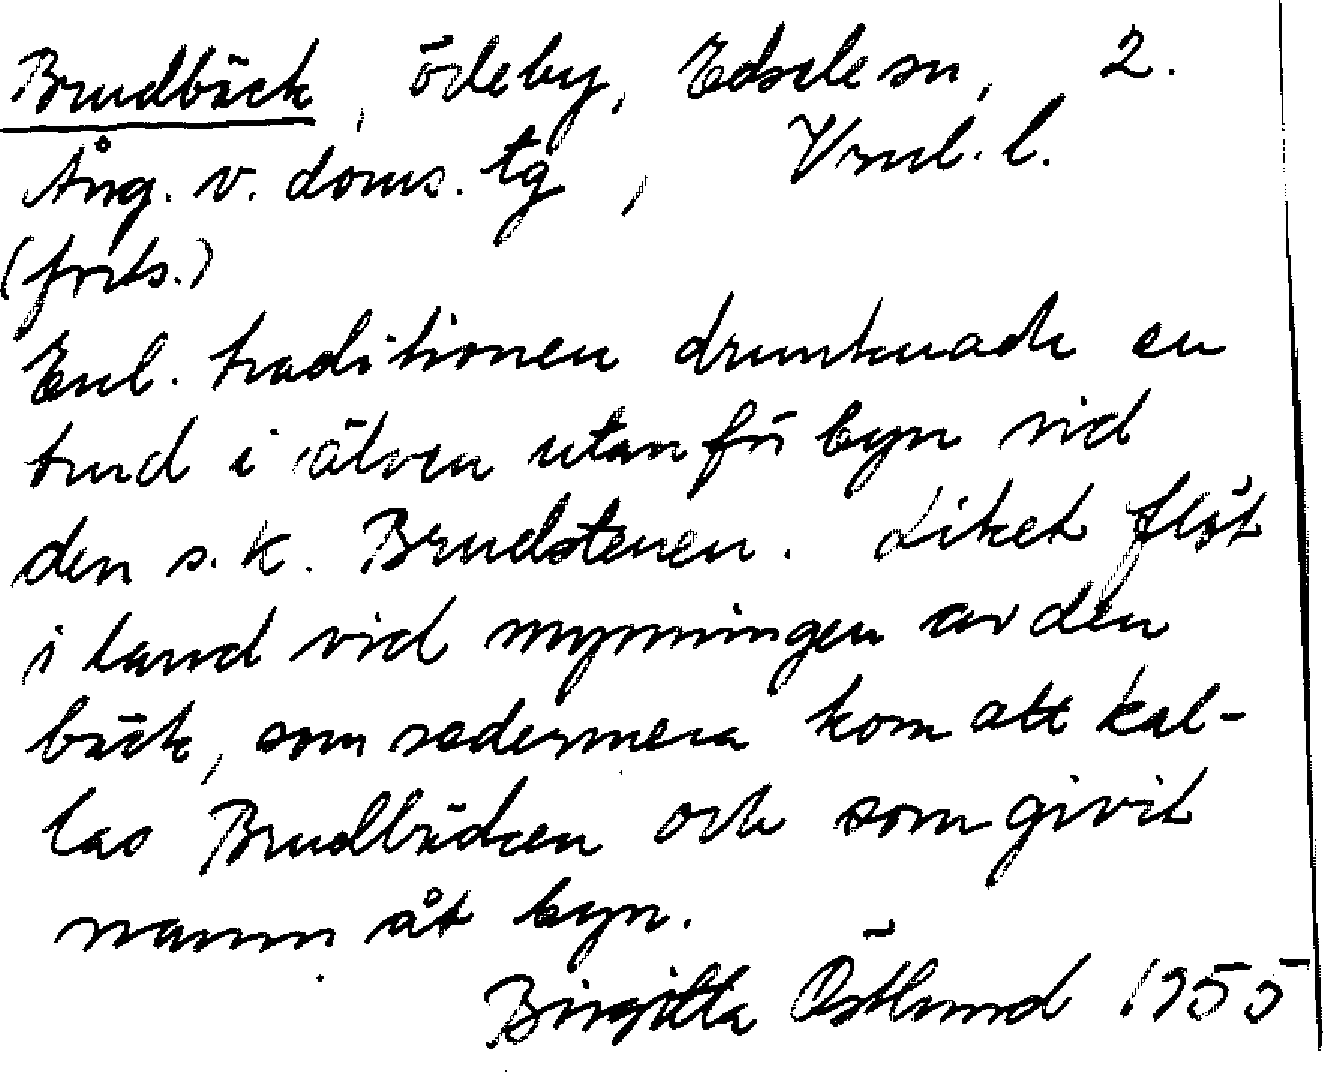 Brudbäck, ödeby, Edsele sn, 2.
Ång. v. doms. tg, Vnl. l.
(forts.)
Enl. traditionen drunknade en
brud i älven utanför byn vid
den s.k. Brudstenen. Liket flöt
i land vid mynningen av den
bäck, som sedermera kom att kal-
las Brudbäcken och som givit
namn åt byn.
Birgitta Östlund 1955